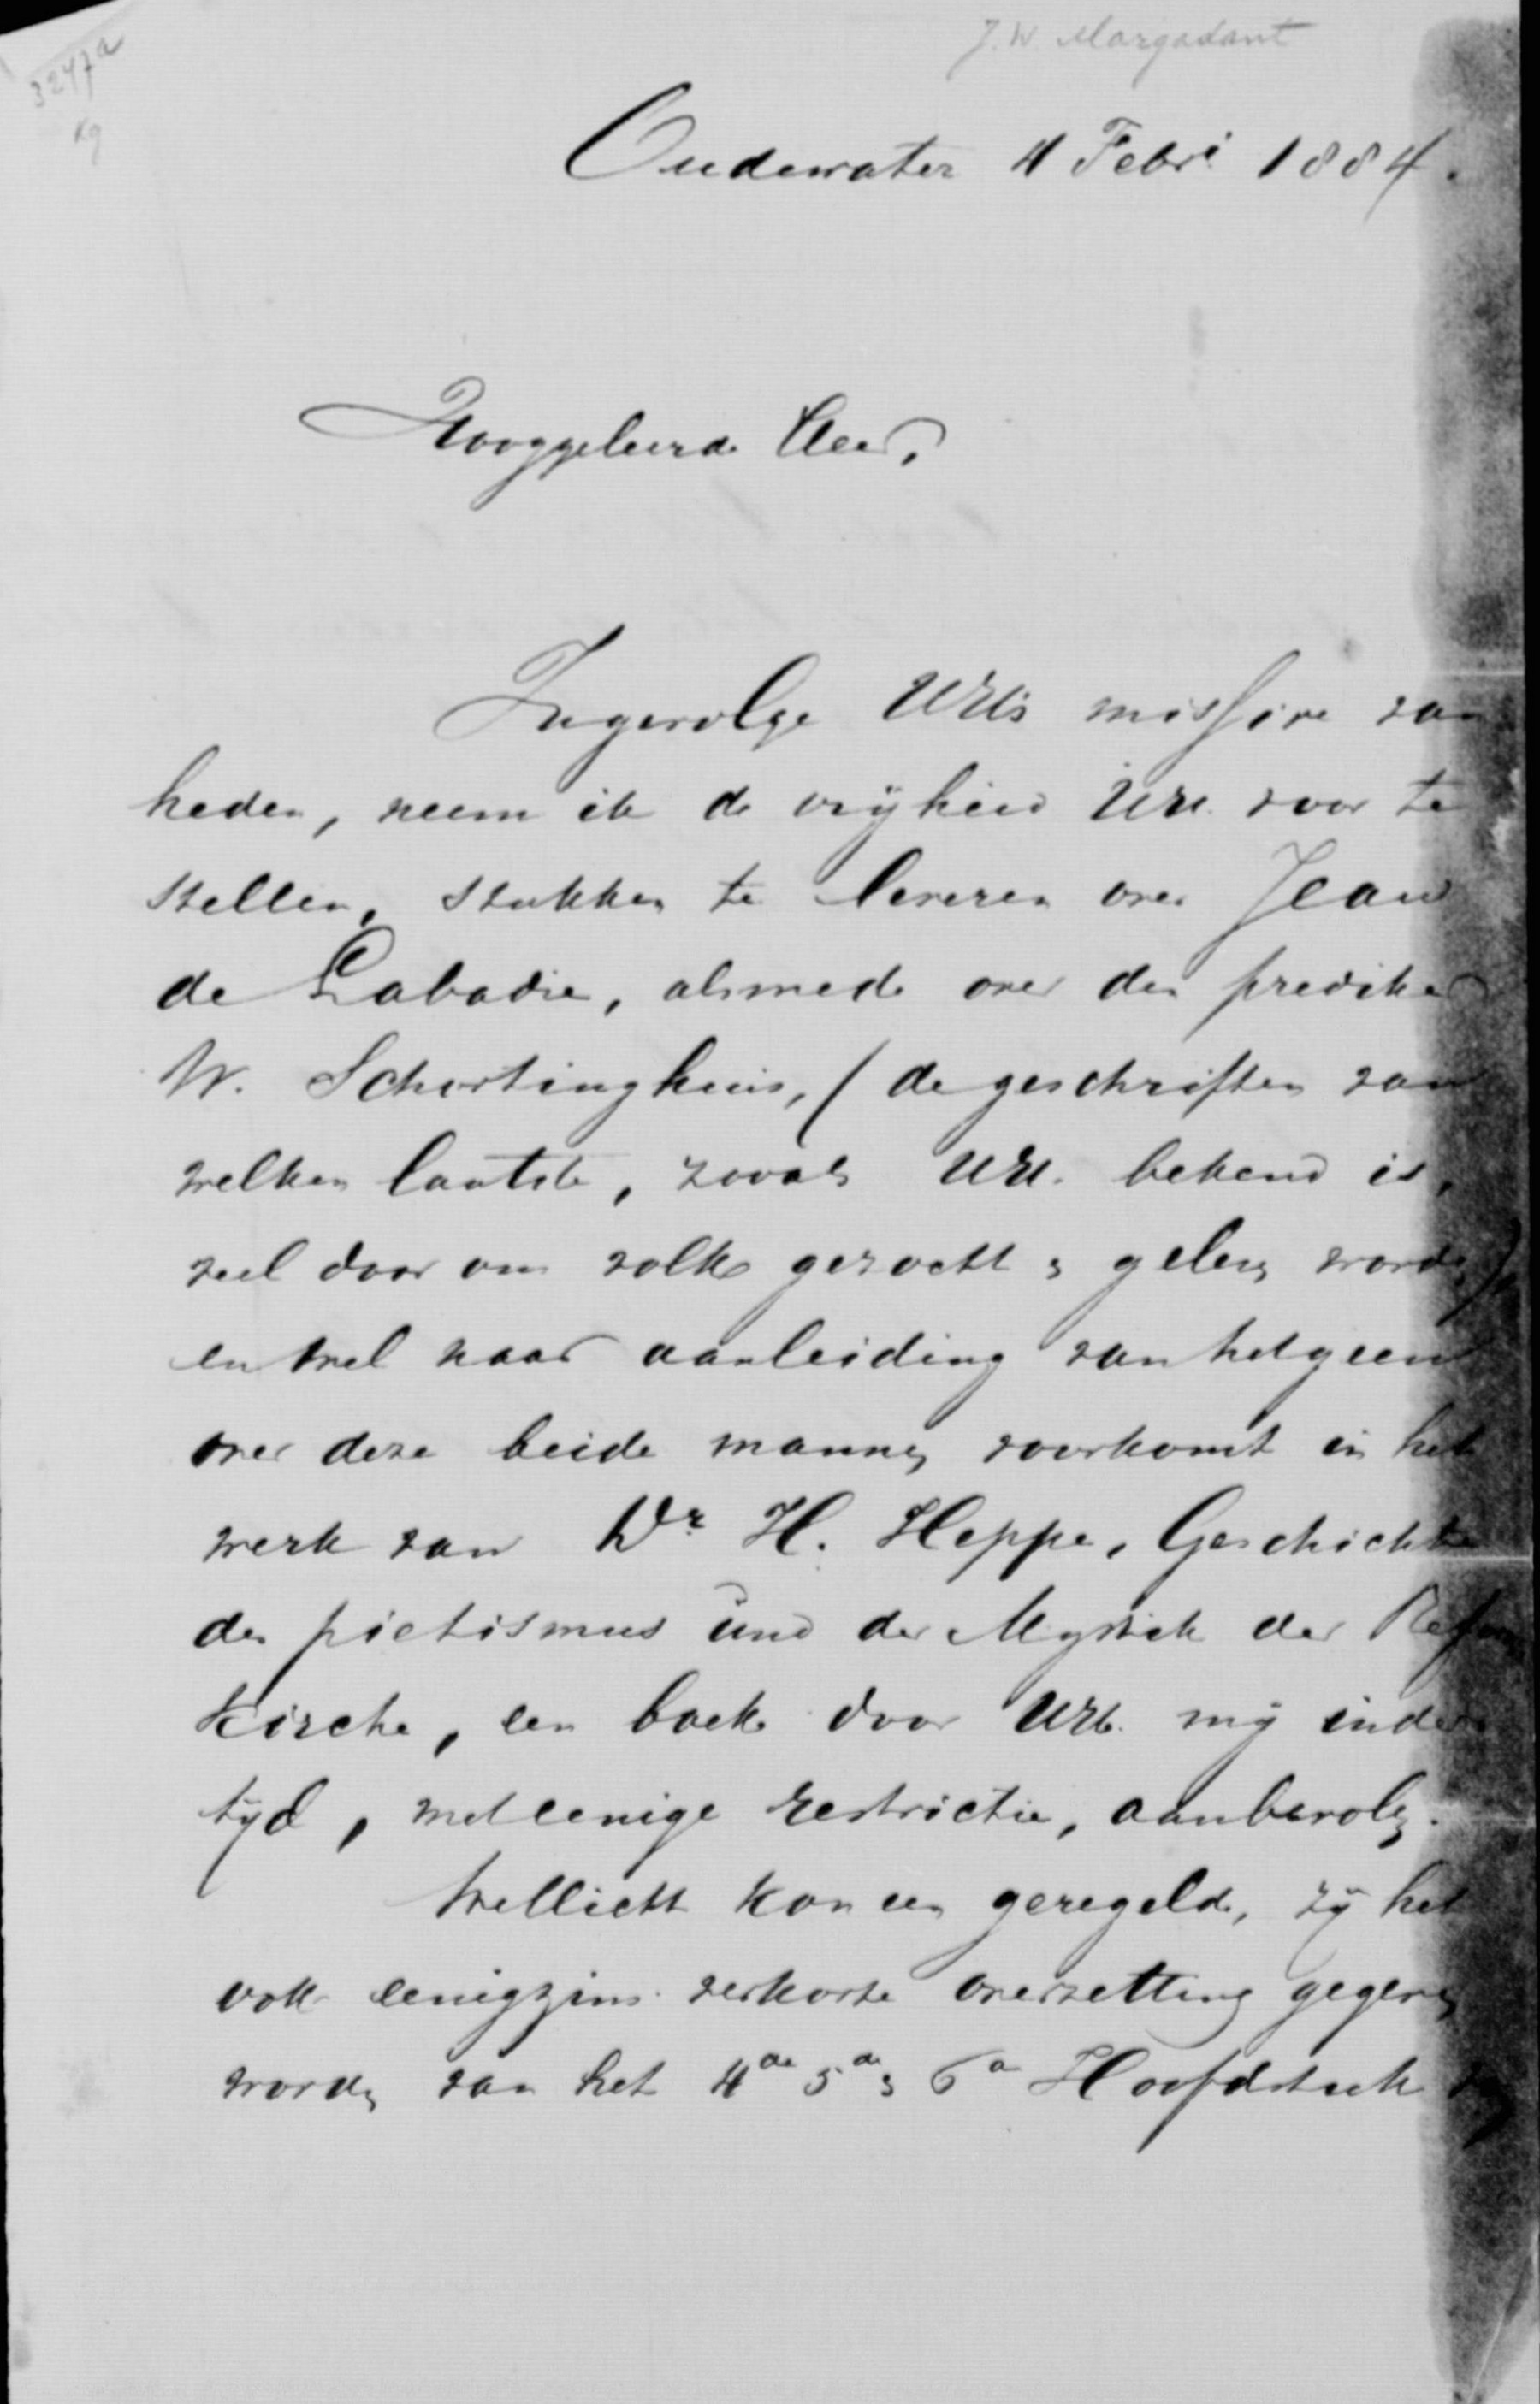 J. W. Margadant
3247a
Kg
Oudewater 4 Febri 1884.
Hooggeleerde Heer,
Ingevolge UEd's missive van
heden, neem ik de vrijheid UEd. voor te
stellen, stukken te leveren over Jean
de Labadie, alsmede over den prediker
W. Schortinghuis, (de geschriften van
welken laatste, zooals UEd. bekend is,
veel door ons volk gezocht & gelezen worden)
en wel naar aanleiding van hetgeen
over deze beide mannen voorkomt in het
werk van Dr H. Heppe, Geschichte
des pietismus und der Mystick der Refor
Kirche, een boek door UEd. mij inder
tijd, met eenige restrictie, aanbevolen.
Wellicht kon een geregelde, zij het
ook eenigzins verkorte overzetting gegeven
worden van het 4de 5de & 6e Hoofdstuk